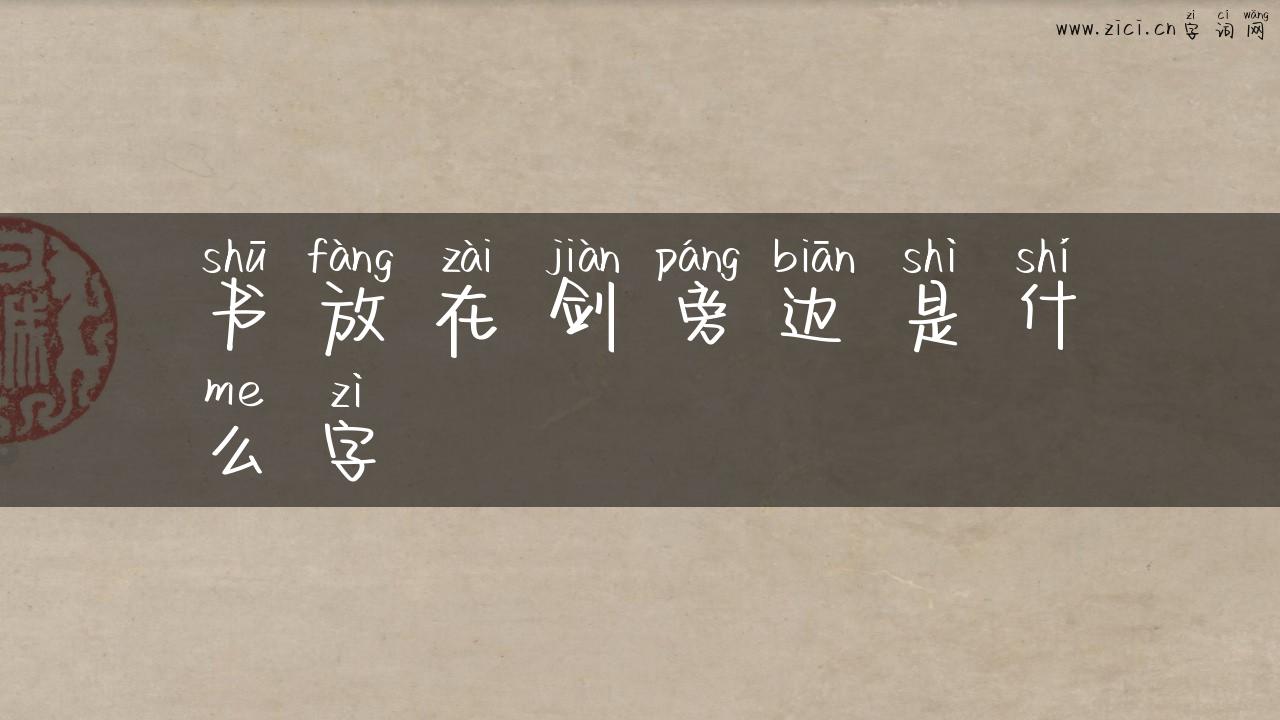 zì cí wǎng
www.zici.cn字词网
shū fàng zài jiàn páng biān shì shí
书放在剑旁边是什
me zì
么字